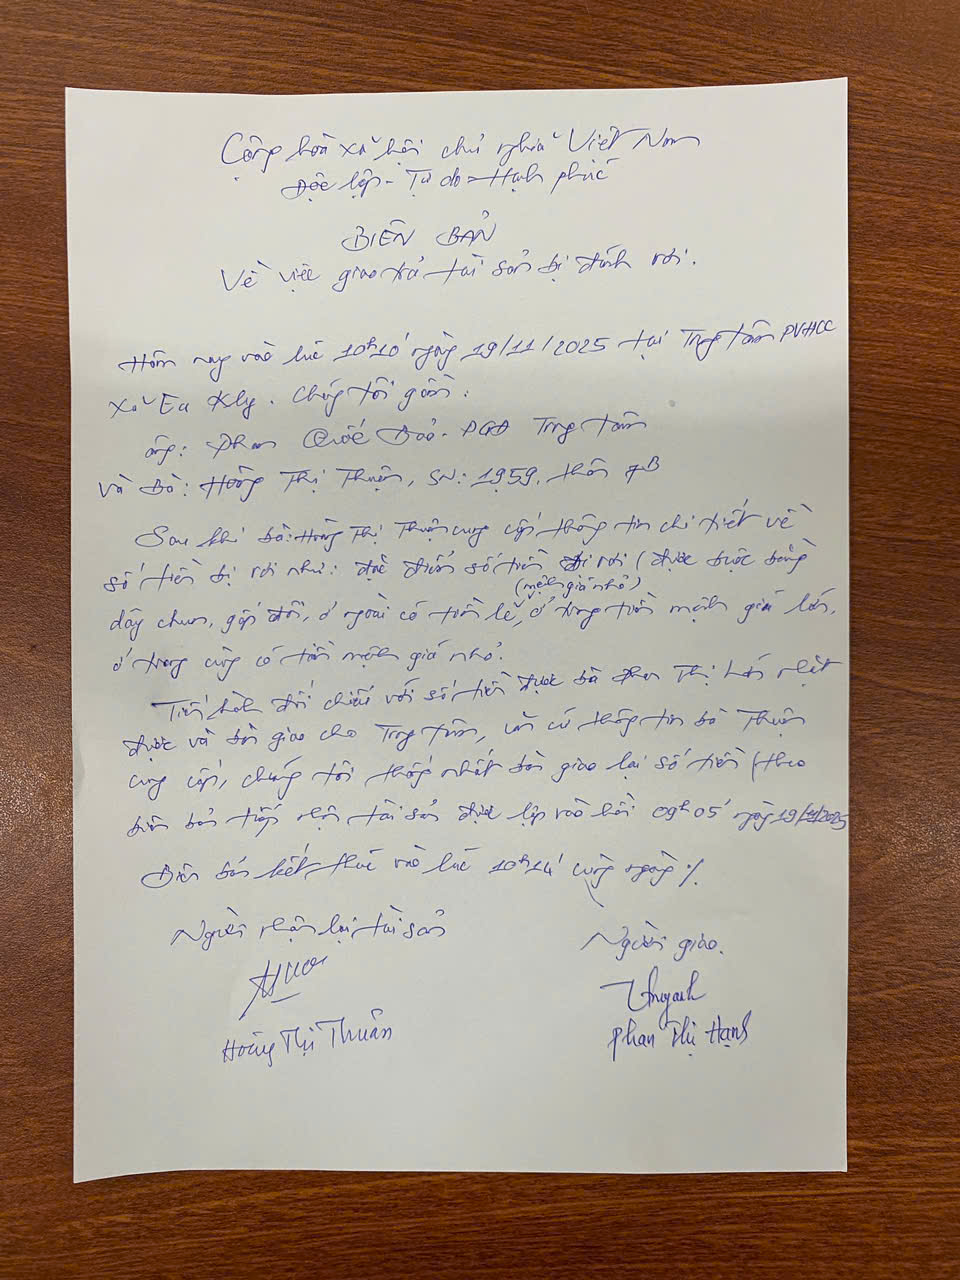 Cộng hoà xã hội chủ nghĩa Việt Nam
Độc lập - Tự do - Hạnh phúc
BIÊN BẢN
Về việc giao trả tài sản bị đánh rơi.
Hôm nay vào lúc 10h10' ngày 19/11/2025 tại Trung tâm PVHCC
xã Ea Kly. Chúng tôi gồm:
ông: Phan Quốc Bảo - PGĐ Trung tâm
và Bà: Hoàng Thị Thuận, SN: 1959, thôn 7B
Sau khi bà: Hoàng Thị Thuận cung cấp thông tin chi tiết về
số tiền bị rơi như: đặc điểm số tiền bị rơi (được buộc bằng
(mệnh giá nhỏ)
dây chun, gấp đôi, ở ngoài có tiền lẻ, ở trong tiền mệnh giá lớn,
ở trong cùng có tiền mệnh giá nhỏ.
Tiến hành đối chiếu với số tiền được bà Phan Thị nhặt
được và bàn giao cho Trung tâm, căn cứ thông tin bà Thuận
cung cấp, chúng tôi thống nhất bàn giao lại số tiền (theo
biên bản tiếp nhận tài sản được lập vào hồi 09h05' ngày 19/11/2025
Biên bản kết thúc vào lúc 10h14' cùng ngày ./.
Người nhận lại tài sản
Người giao.
Hoàng Thị Thuận
Phan Thị Hạnh